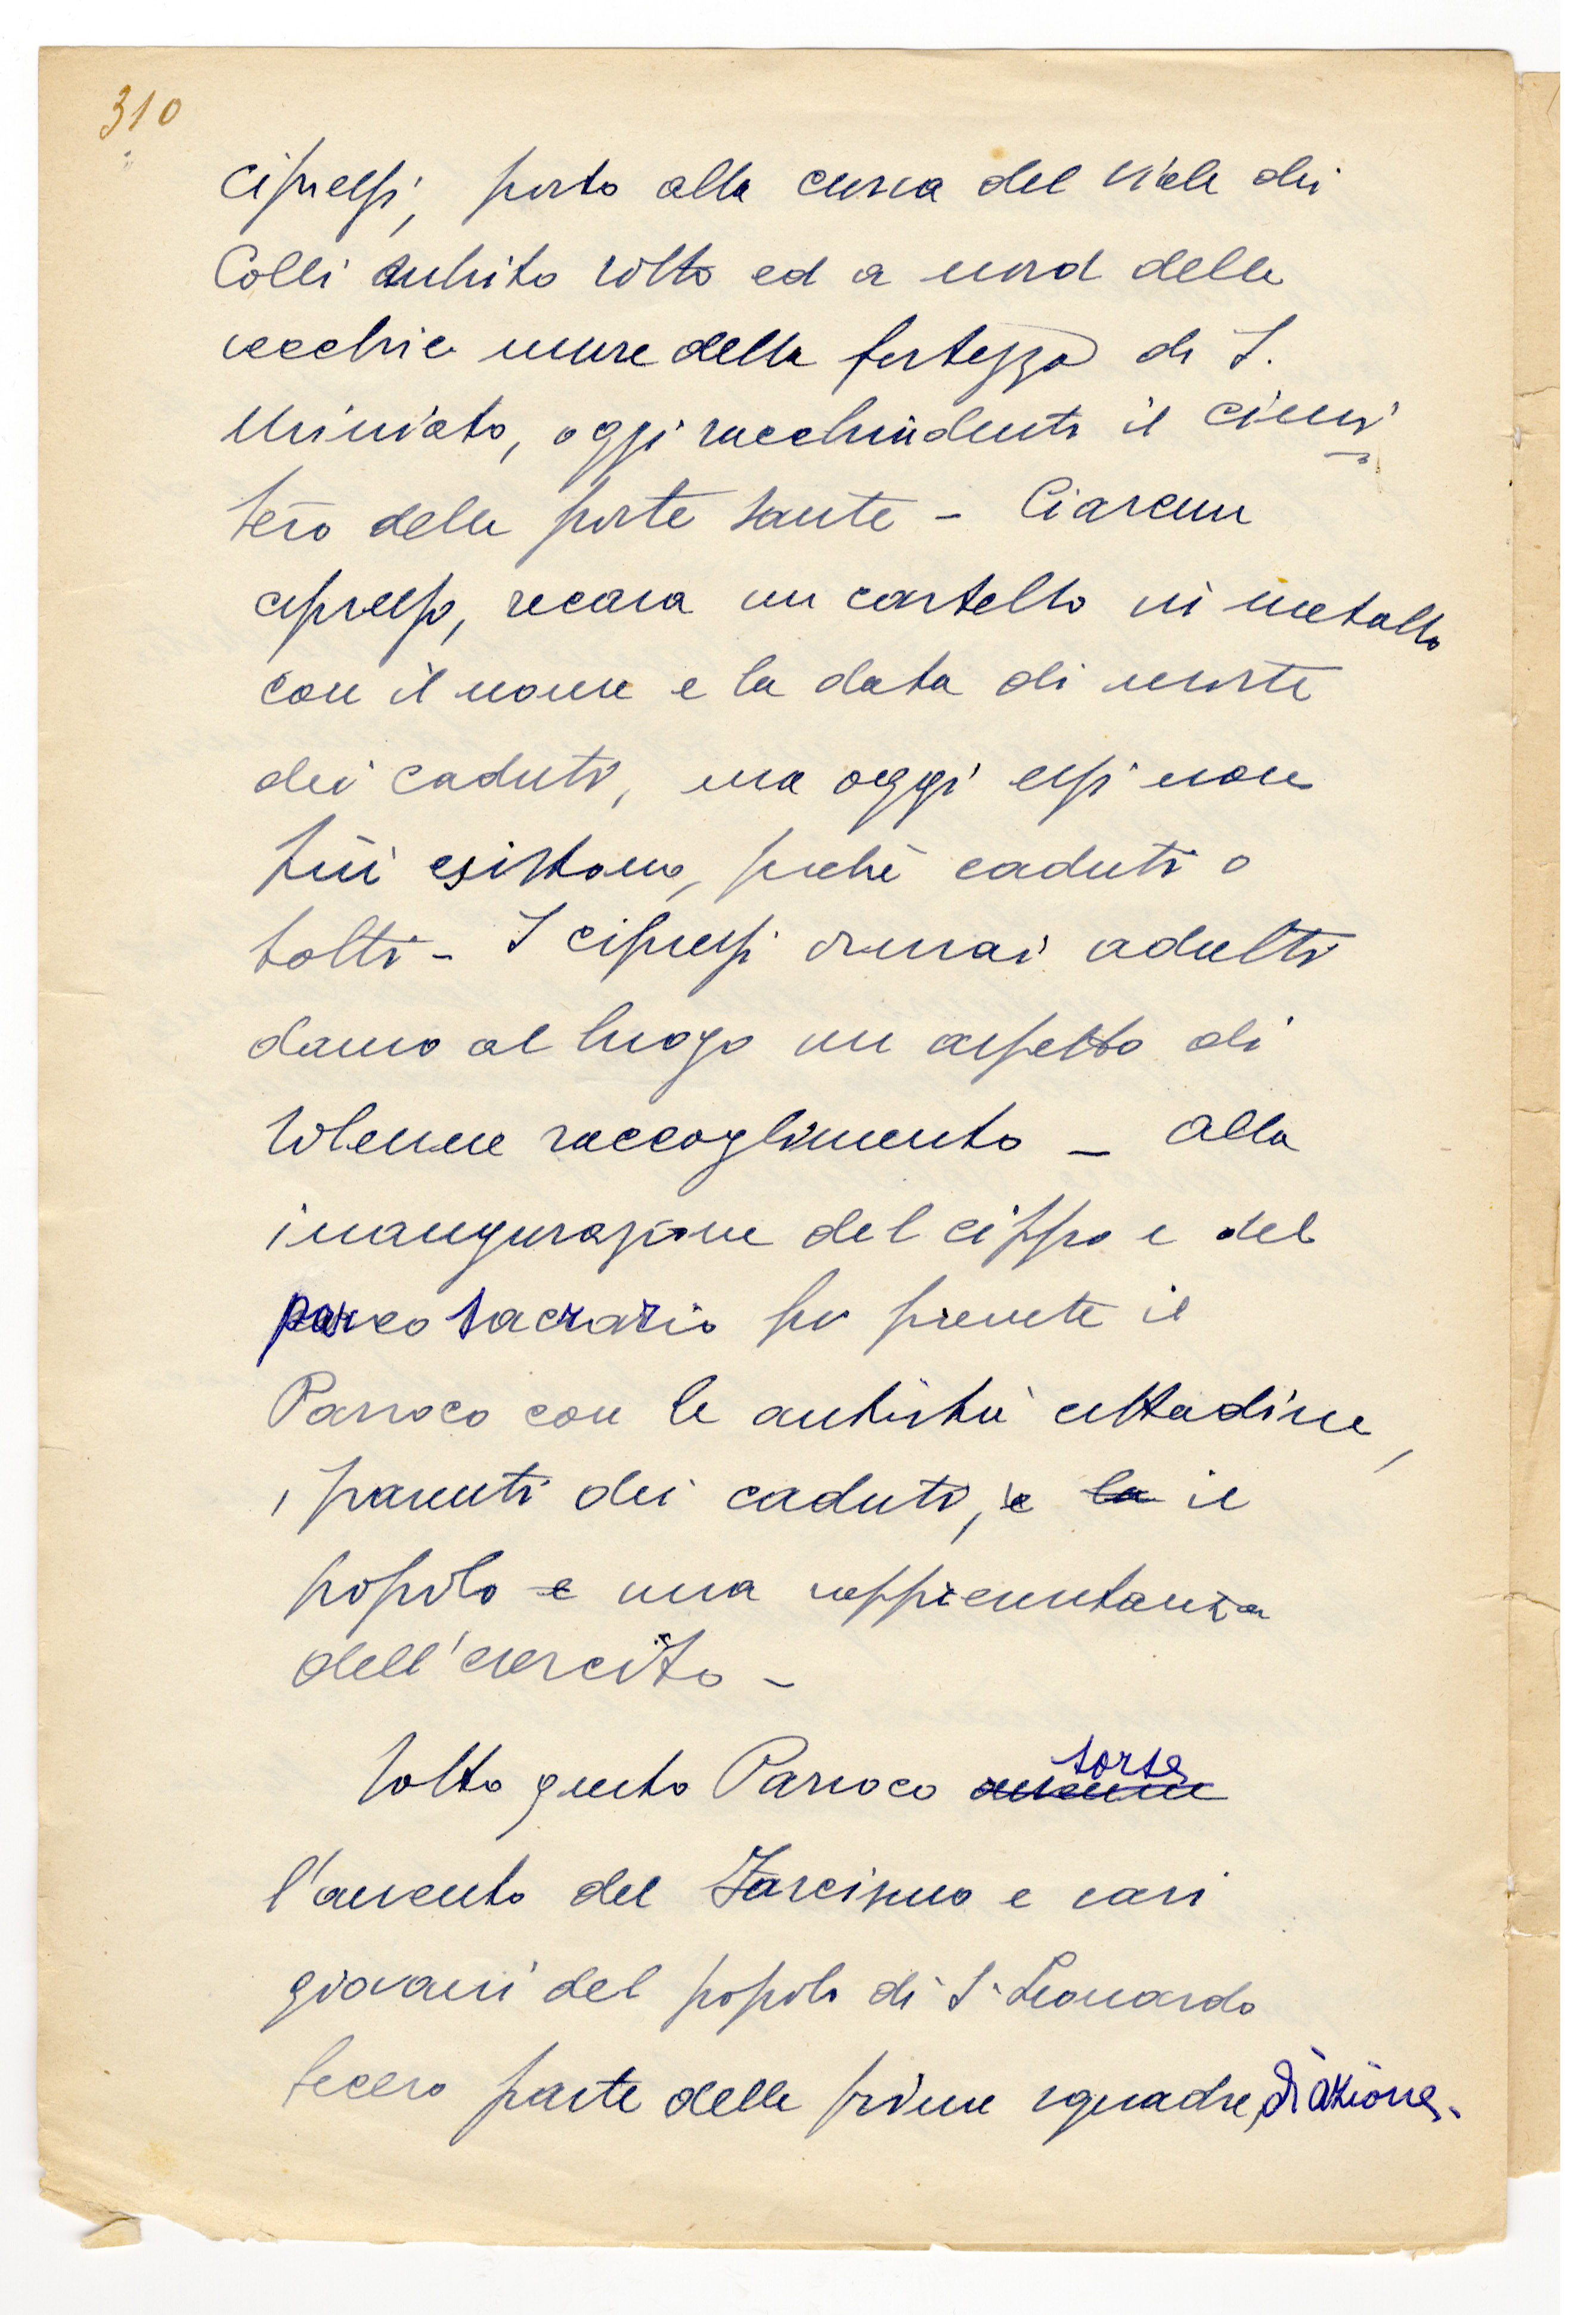 310
cipressi, posto alla curva del viale dei
Colli subito sotto ed a nord delle
vecchie mure della fortezza di S.
Miniato, oggi racchiudente il cimi
tero delle porte sante - Ciascun
cipresso, recava un cartello in metallo
con il nome e la data di morte
dei caduti, ma oggi essi non
più esistono, perchè caduti o
tolti - I cipressi ormai adulti
danno al luogo un aspetto di
solenne raccoglimento - Alla
inaugurazione del cippo e del
parco sacrario fu presente il
Parroco con le autorità cittadine,
i parenti dei caduti, e la il
popolo e una rappresentanza
dell'esercito -
sorse
Sotto questo Parroco
l'avvento del Fascismo e vari
giovani del popolo di S. Leonardo
fecero parte delle prime squadre, di azione.